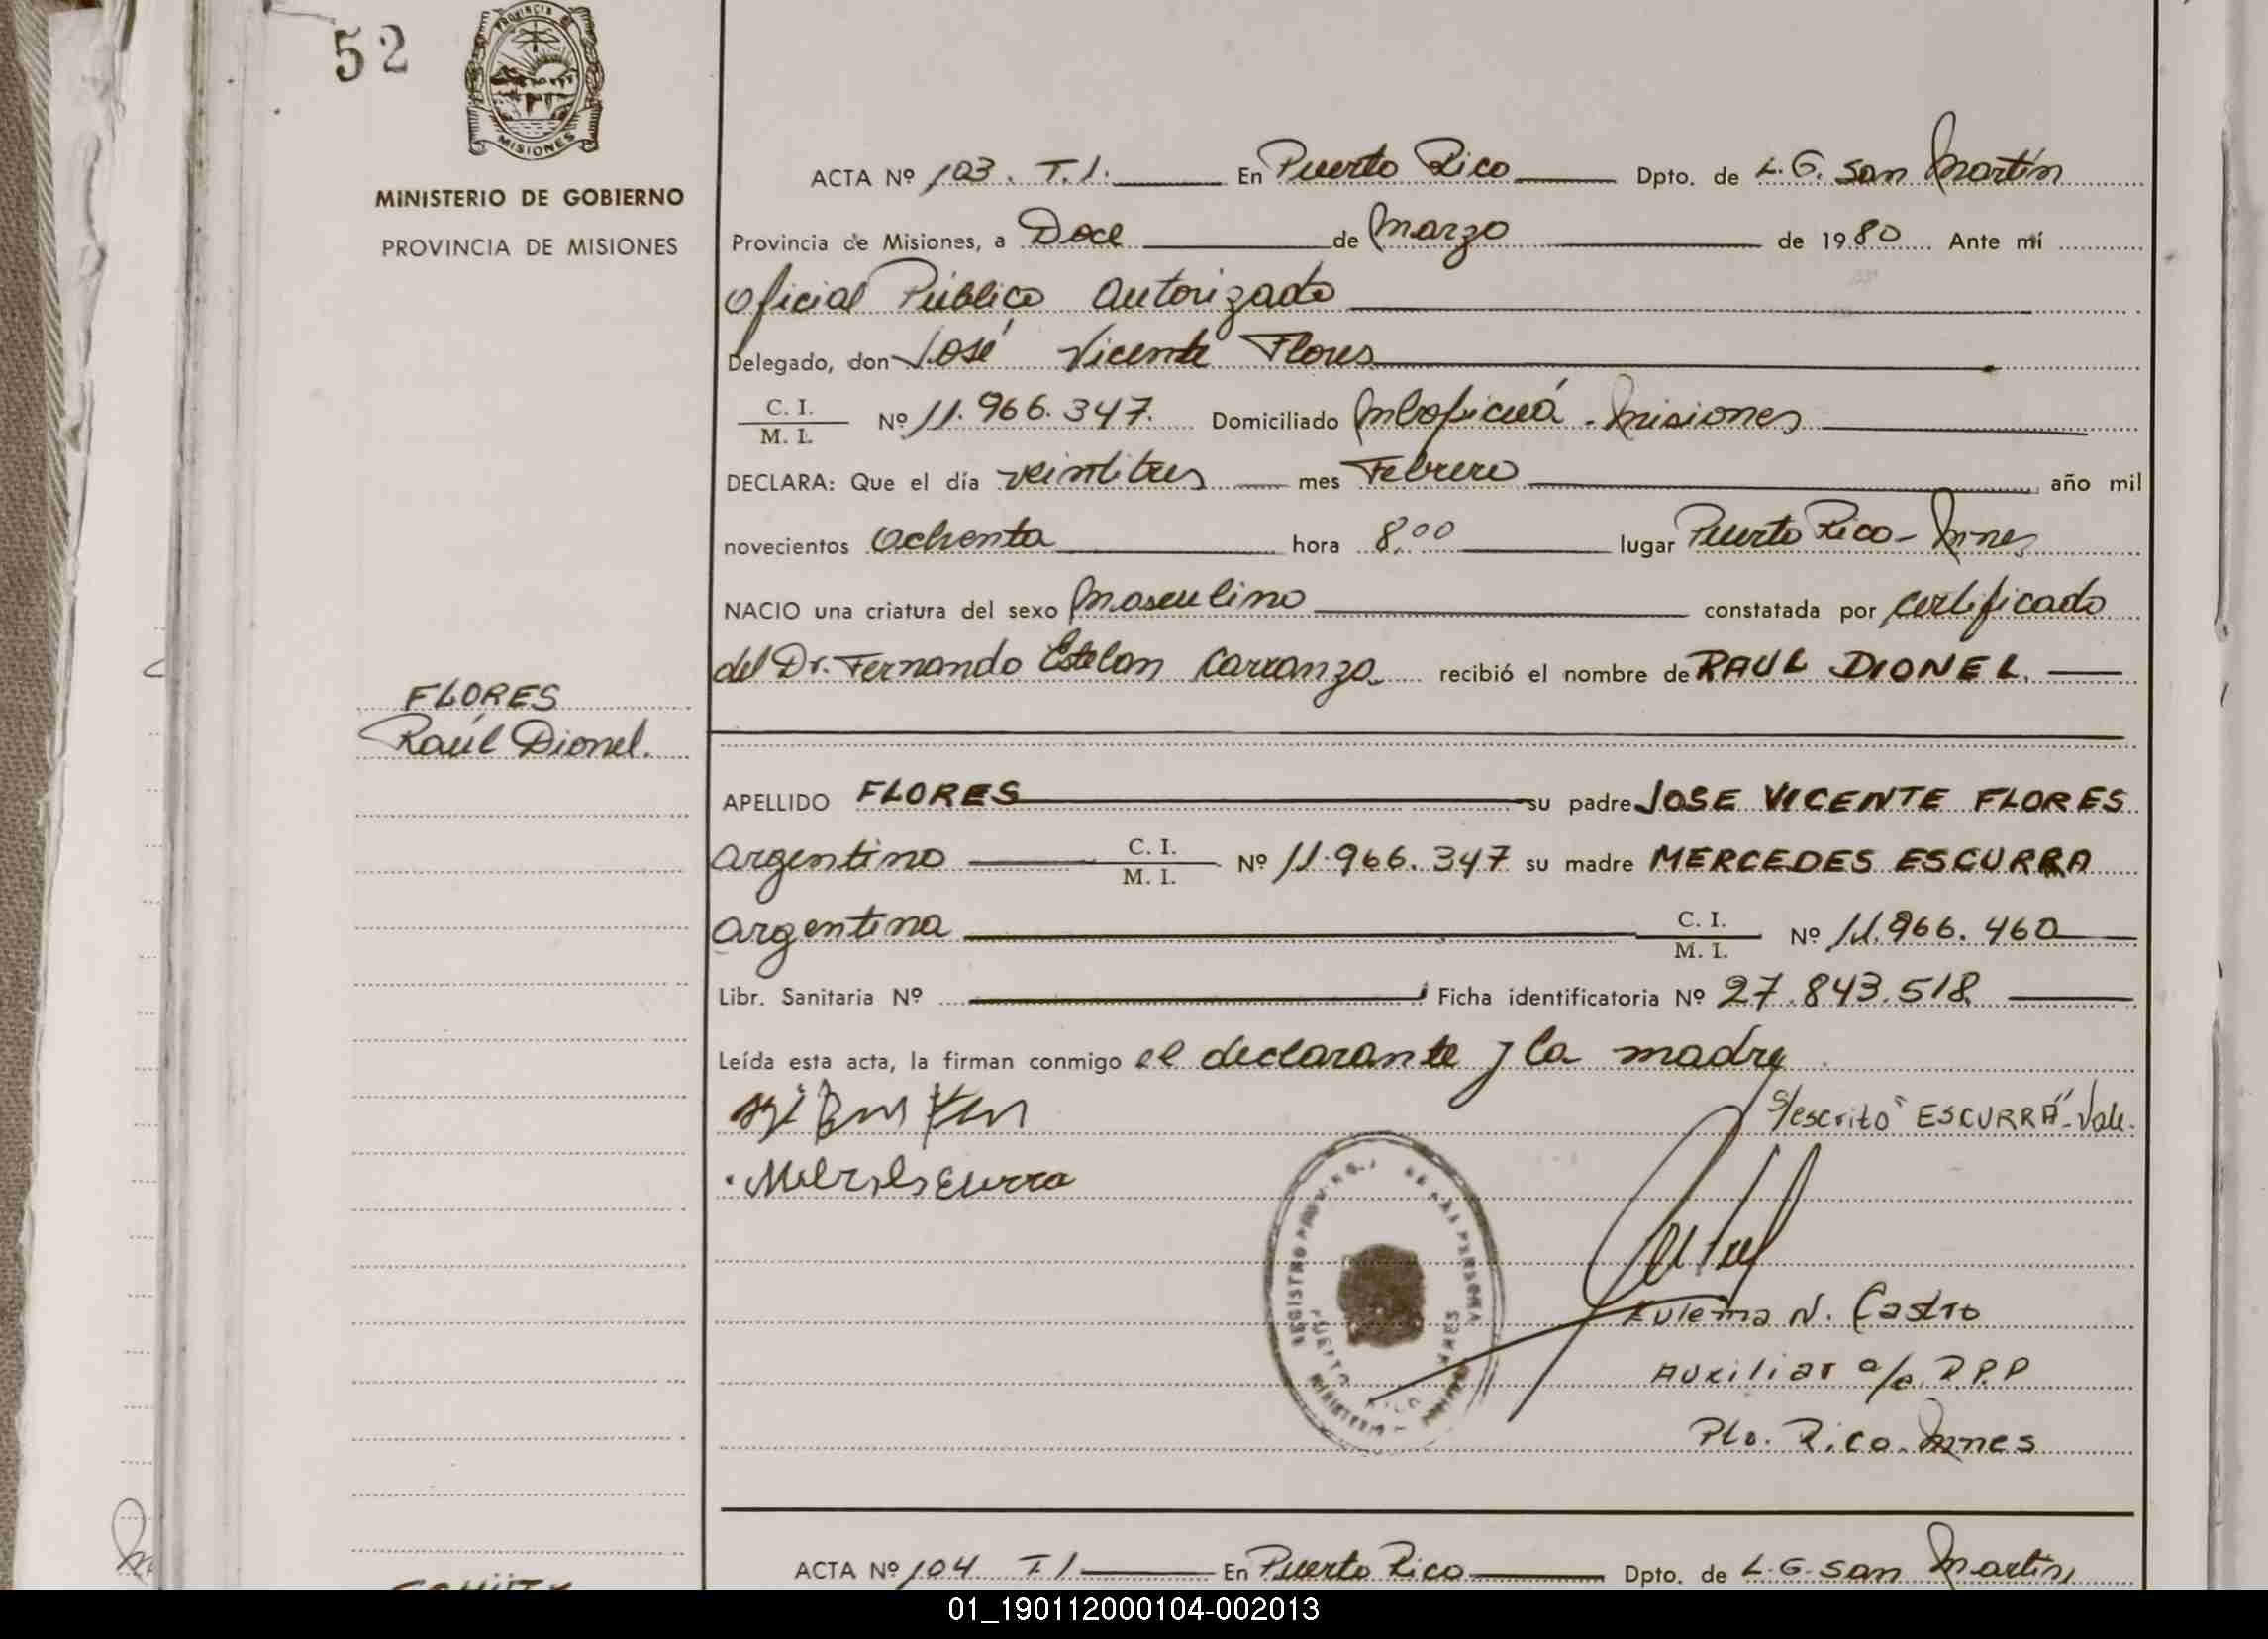 52
PROVINCIA DE
MISIONES
MINISTERIO DE GOBIERNO
PROVINCIA DE MISIONES
FLORES
Raúl Dionel.
ACTA Nº 103. T.1. En Puerto Rico Dpto. de L. G. San Martín
Provincia de Misiones, a Doce de Marzo de 1980 Ante mí
Oficial Público Autorizado
Delegado, don José Vicente Flores
C. I. / M. I. Nº 11.966.347. Domiciliado Mbopicuá - Misiones
DECLARA: Que el día veintitres mes Febrero año mil
novecientos Ochenta hora 8,00 lugar Puerto Rico - Mnes
NACIO una criatura del sexo Masculino constatada por certificado
del Dr. Fernando Estelan Carranza recibió el nombre de RAUL DIONEL.
APELLIDO FLORES su padre JOSE VICENTE FLORES
argentino C. I. / M. I. Nº 11.966.347 su madre MERCEDES ESCURRA
argentina C. I. / M. I. Nº 11.966.460
Libr. Sanitaria Nº Ficha identificatoria Nº 27.843.518
Leída esta acta, la firman conmigo el declarante y la madre.
S/escrito "ESCURRA" - Vale.
REGISTRO PROV. DE LAS PERSONAS
PUERTO RICO MNES
Eulema N. Castro
Auxiliar a/c D.P.P
Pto. Rico. Mnes
ACTA Nº 104 T1 En Puerto Rico Dpto. de L. G. San Martín
01_190112000104-002013